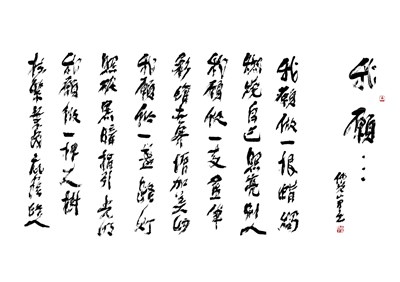 我願…
我願做一根蜡燭
燃燒自己照亮别人
我願做一支畫筆
世界增加美的
我願做一盞路灯
照破黑暗指引光明
我願做一棵大樹
枝繁葉茂庇蔭路人